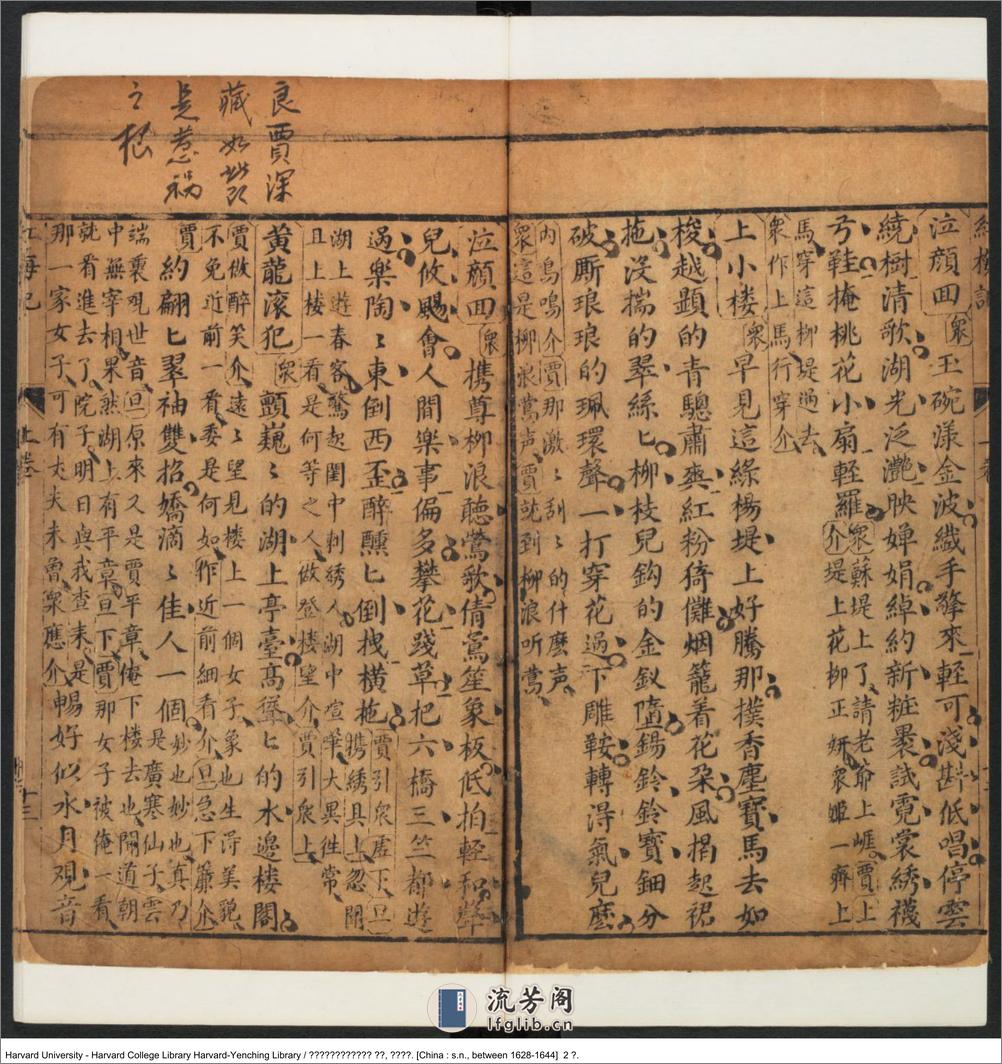 良賈深
藏如
是惹禍
之根
泣顏回衆玉碗漾金波纖手擎來輕可淺斟低唱停雲
繞樹清歌湖光泛灔映嬋娟綽約新粧褁試霓裳綉襪
弓鞋掩桃花小扇輕羅衆介蘇堤上了請老爺上崕賈上堤上花柳正妍衆姬一齊上
馬穿這柳堤過去
衆作上馬行穿介
上小楼衆早見這綠楊堤上好騰那撲香塵寶馬去如
梭越顕的青驄肅爽紅粉猗儺烟籠着花朶風捎起裙
拖没揣的翠絲匕柳枝兒鈎的金釵墮鍚鈴鈴寶鈿分
破厮琅琅的珮環聲一打穿花過下雕鞍轉得氣兒麽
内鳥鳴介賈那激〻刮〻的什麽声
衆這是柳浪鶯声賈說到柳浪听鶯
泣顏回衆携尊柳浪聽鶯歌倩鶯笙象板低拍輕和聲
兒攸賜會人間樂事偏多攀花踐草把六橋三竺都遊
過樂陶〻東倒西歪醉醺匕倒拽橫拖賈引衆虚下旦携綉具上忽聞
湖上遊春客驚起閨中刺綉人湖中喧華大異徃常
且上楼一看是何等之人做登楼望介賈引衆上
黄龍滚犯衆顫巍〻的湖上亭臺高聳匕的水邉楼閣
賈做醉笑介遠〻望見楼上一個女子象也生淂美貌
不免近前一看委是何如作近前細看介旦急下簾介
賈約翩匕翠袖雙招嬌滴〻佳人一個妙也妙也真乃是廣寒仙子雲
端裏观世音旦原來又是賈平章俺下楼去也閙道朝
中無宰相果然湖上有平章旦下賈那女子被俺一看
就看進去了院子明日與我查来是
那一家女子可有丈夫未曾衆應介暢好似水月观音
上卷
十三
流芳阁
lfglib.cn
Harvard University - Harvard College Library Harvard-Yenching Library / ???????????? ??, ????. [China : s.n., between 1628-1644] 2 ?.